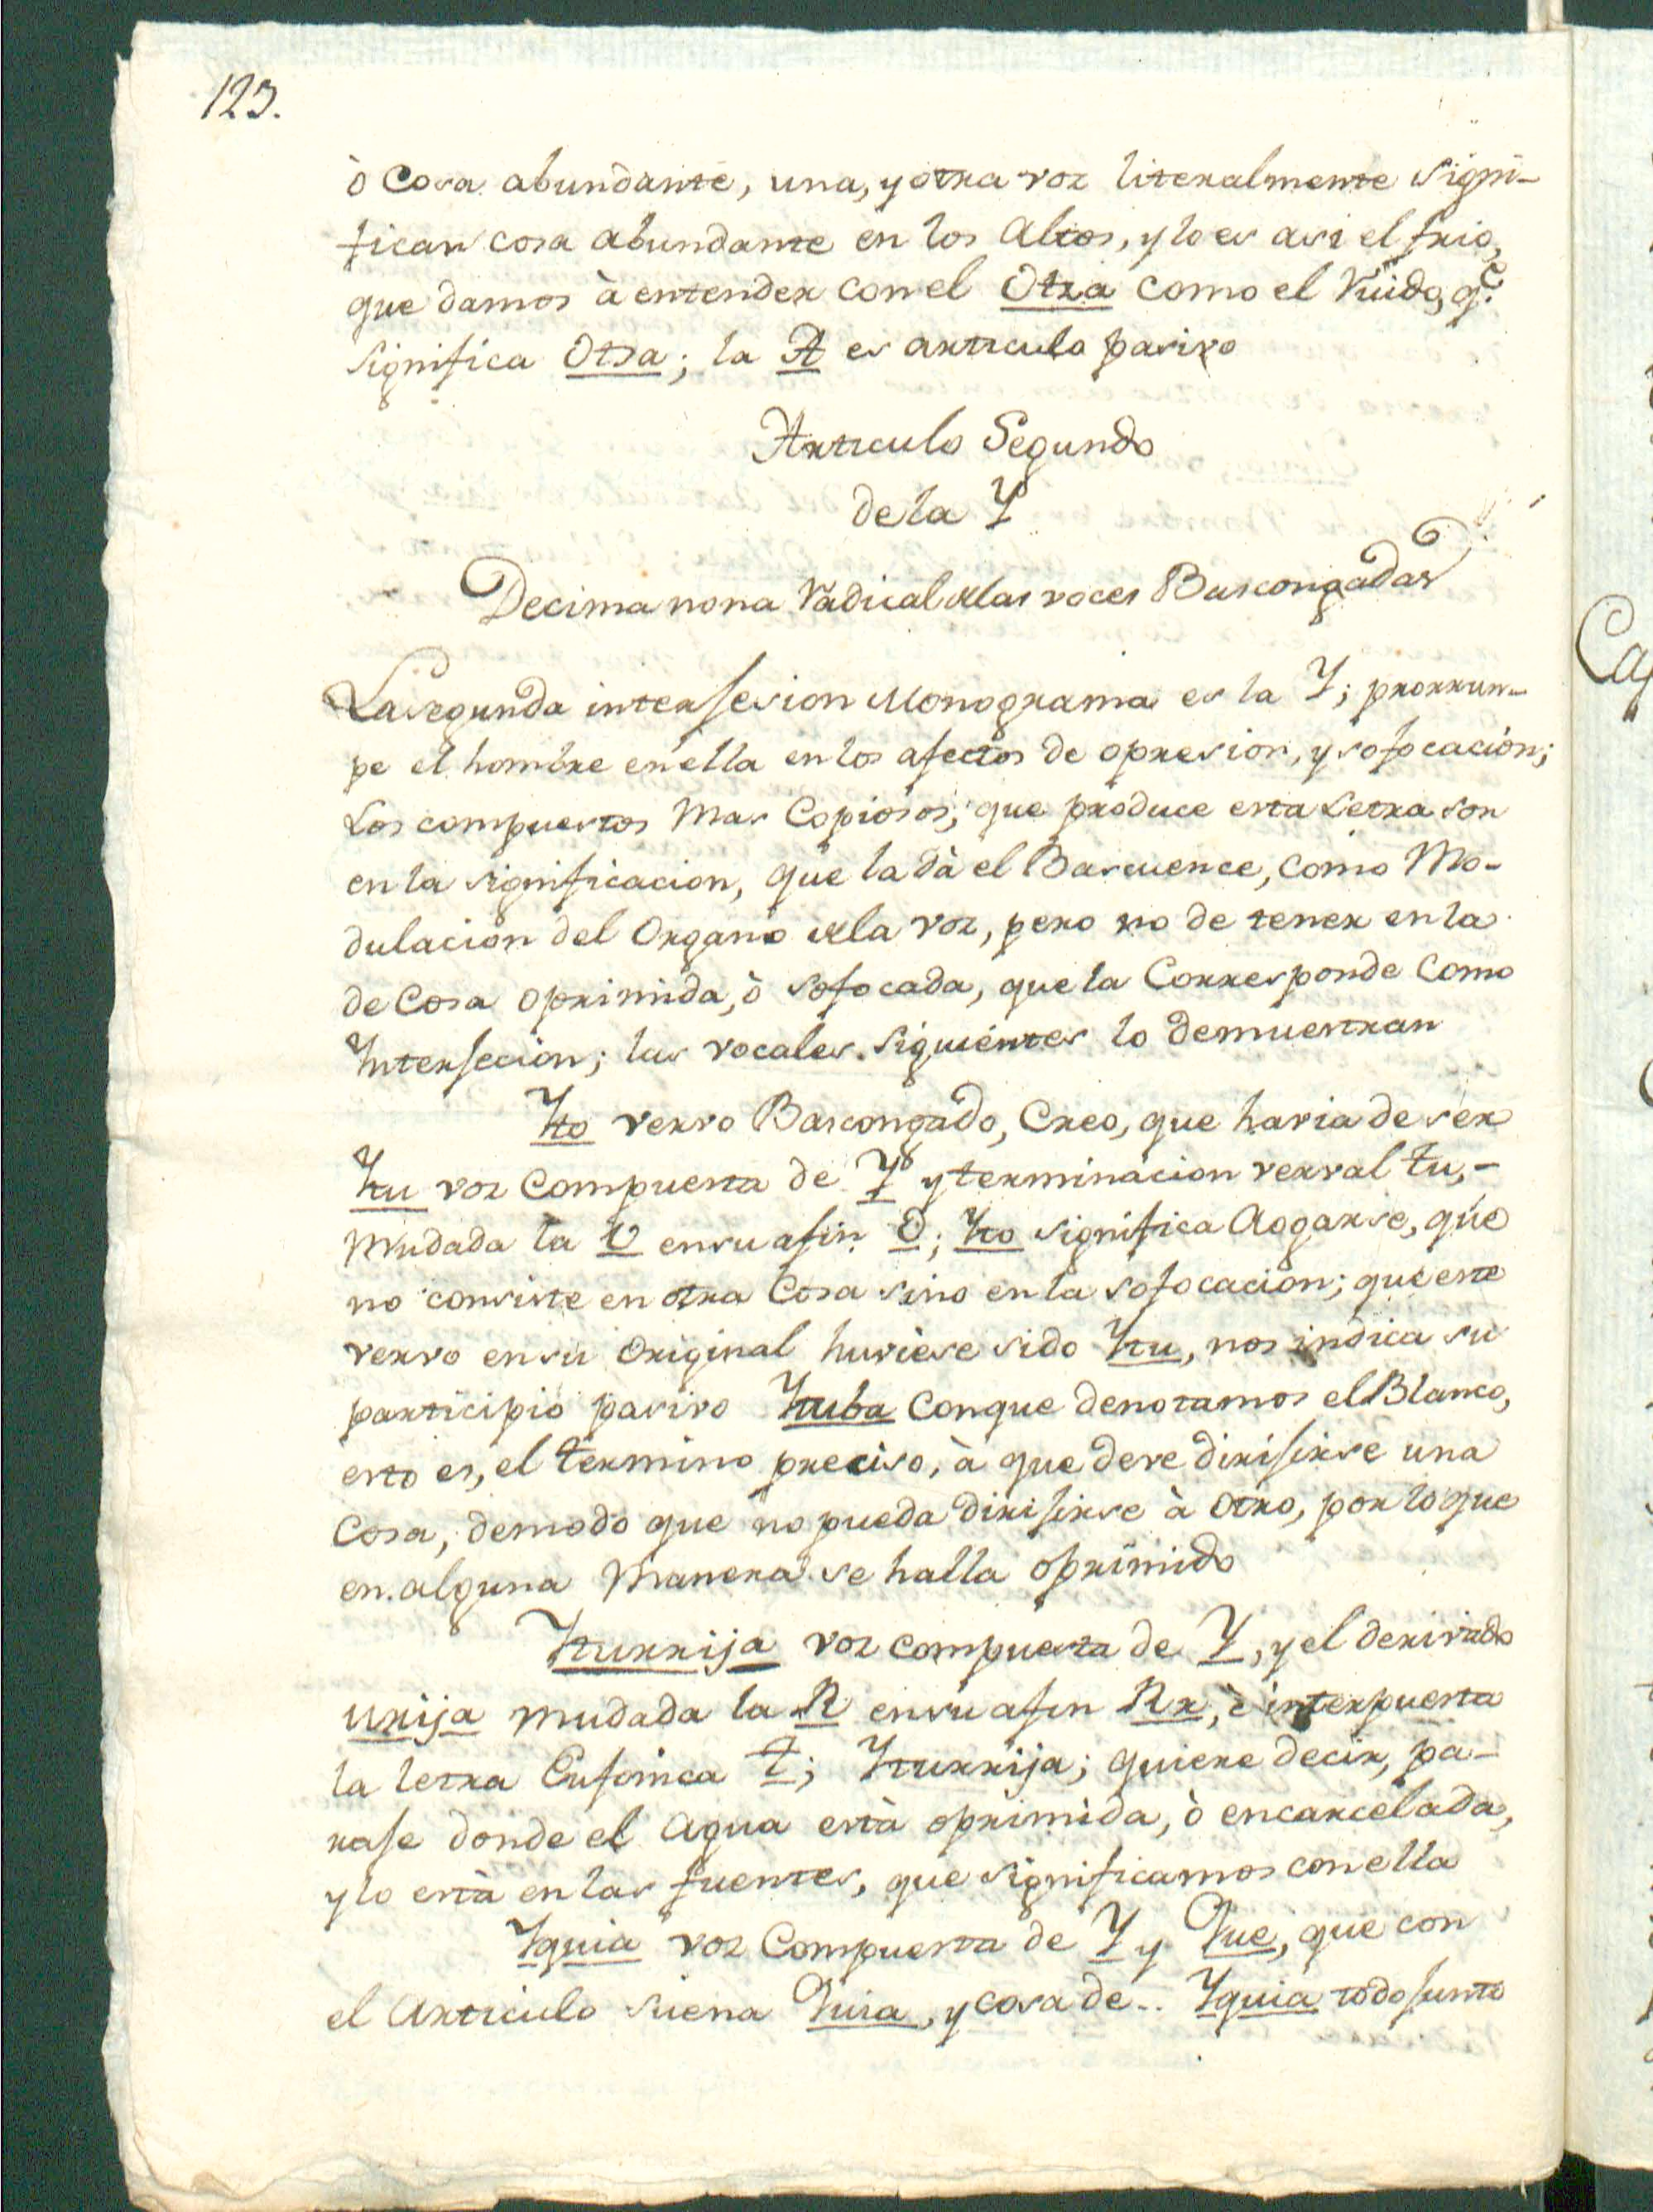 123.
ò Cosa abundante, una, y otra voz literalmente signi-
fican cosa abundante en los Altos, y lo es asi el frio,
que damos à entender con el Otza como el Ruido, q.e
significa Otsa; la A es articulo pasivo
Articulo Segundo
de la Y
Decima nona Radical de las voces Bascongadas
La segunda interjesion Monograma es la Y; prorrun-
pe el hombre en ella en los afectos de opresion, y sofocacion;
Los compuestos mas Copiosos, que produce esta Letra son
en la significacion, que la dà el Bascuence, como Mo-
dulacion del Organo de la voz, pero no de tener en la
de Cosa oprimida, ò sofocada, que la Corresponde Como
Interjecion; las vocales siguientes lo demuestran
Yto vervo Bascongado, Creo, que havia de ser
Ytu voz Compuesta de Y y terminacion verval tu,-
Mudada la U en su afin O; Yto significa Aogarse, que
no consiste en otra Cosa sino en la sofocacion; que este
vervo en su Original huviese sido Ytu, nos indica su
participio pasivo Ytuba Con que denotamos el Blanco,
esto es, el termino preciso, à que deve dirijirse una
Cosa, de modo que no pueda dirijirse à otro, por lo que
en alguna Manera se halla oprimido
Yturrija voz compuesta de Y, y el derivado
urija mudada la R en su afin Rr, è interpuesta
la letra Eufonica t; Yturrija; quiere decir, pa-
raje donde el Agua està oprimida, ò encarcelada,
y lo està en las fuentes, que significamos con ella
Yquia voz Compuesta de Y y Que, que con
el Articulo suena Quia, y cosa de.. Yquia todo junto